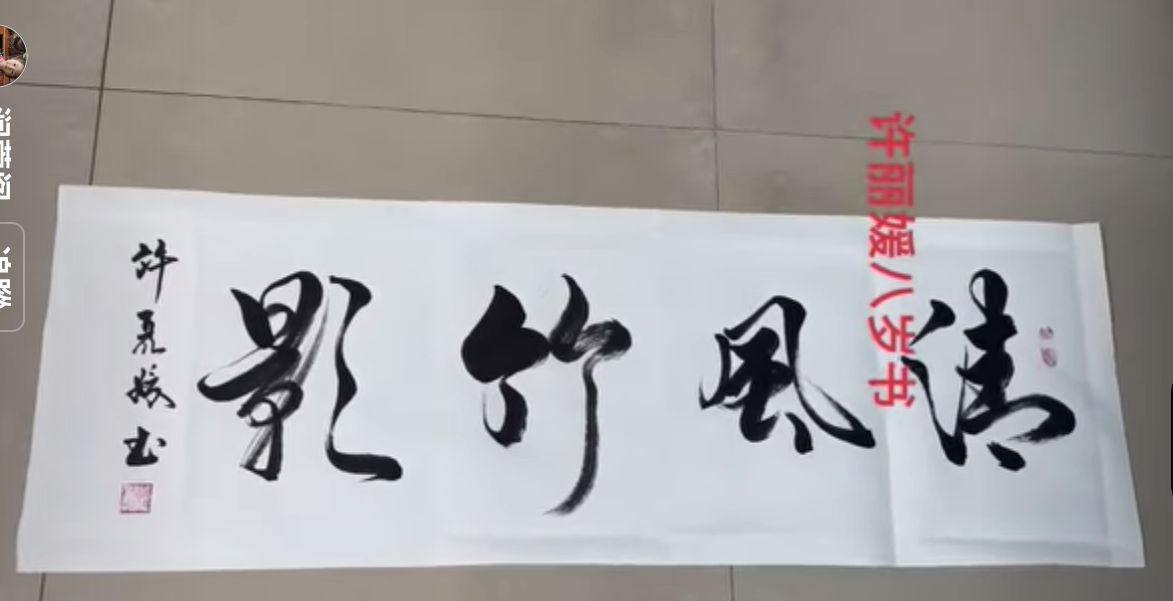 清風竹影
許麗媛书
许丽媛八岁书